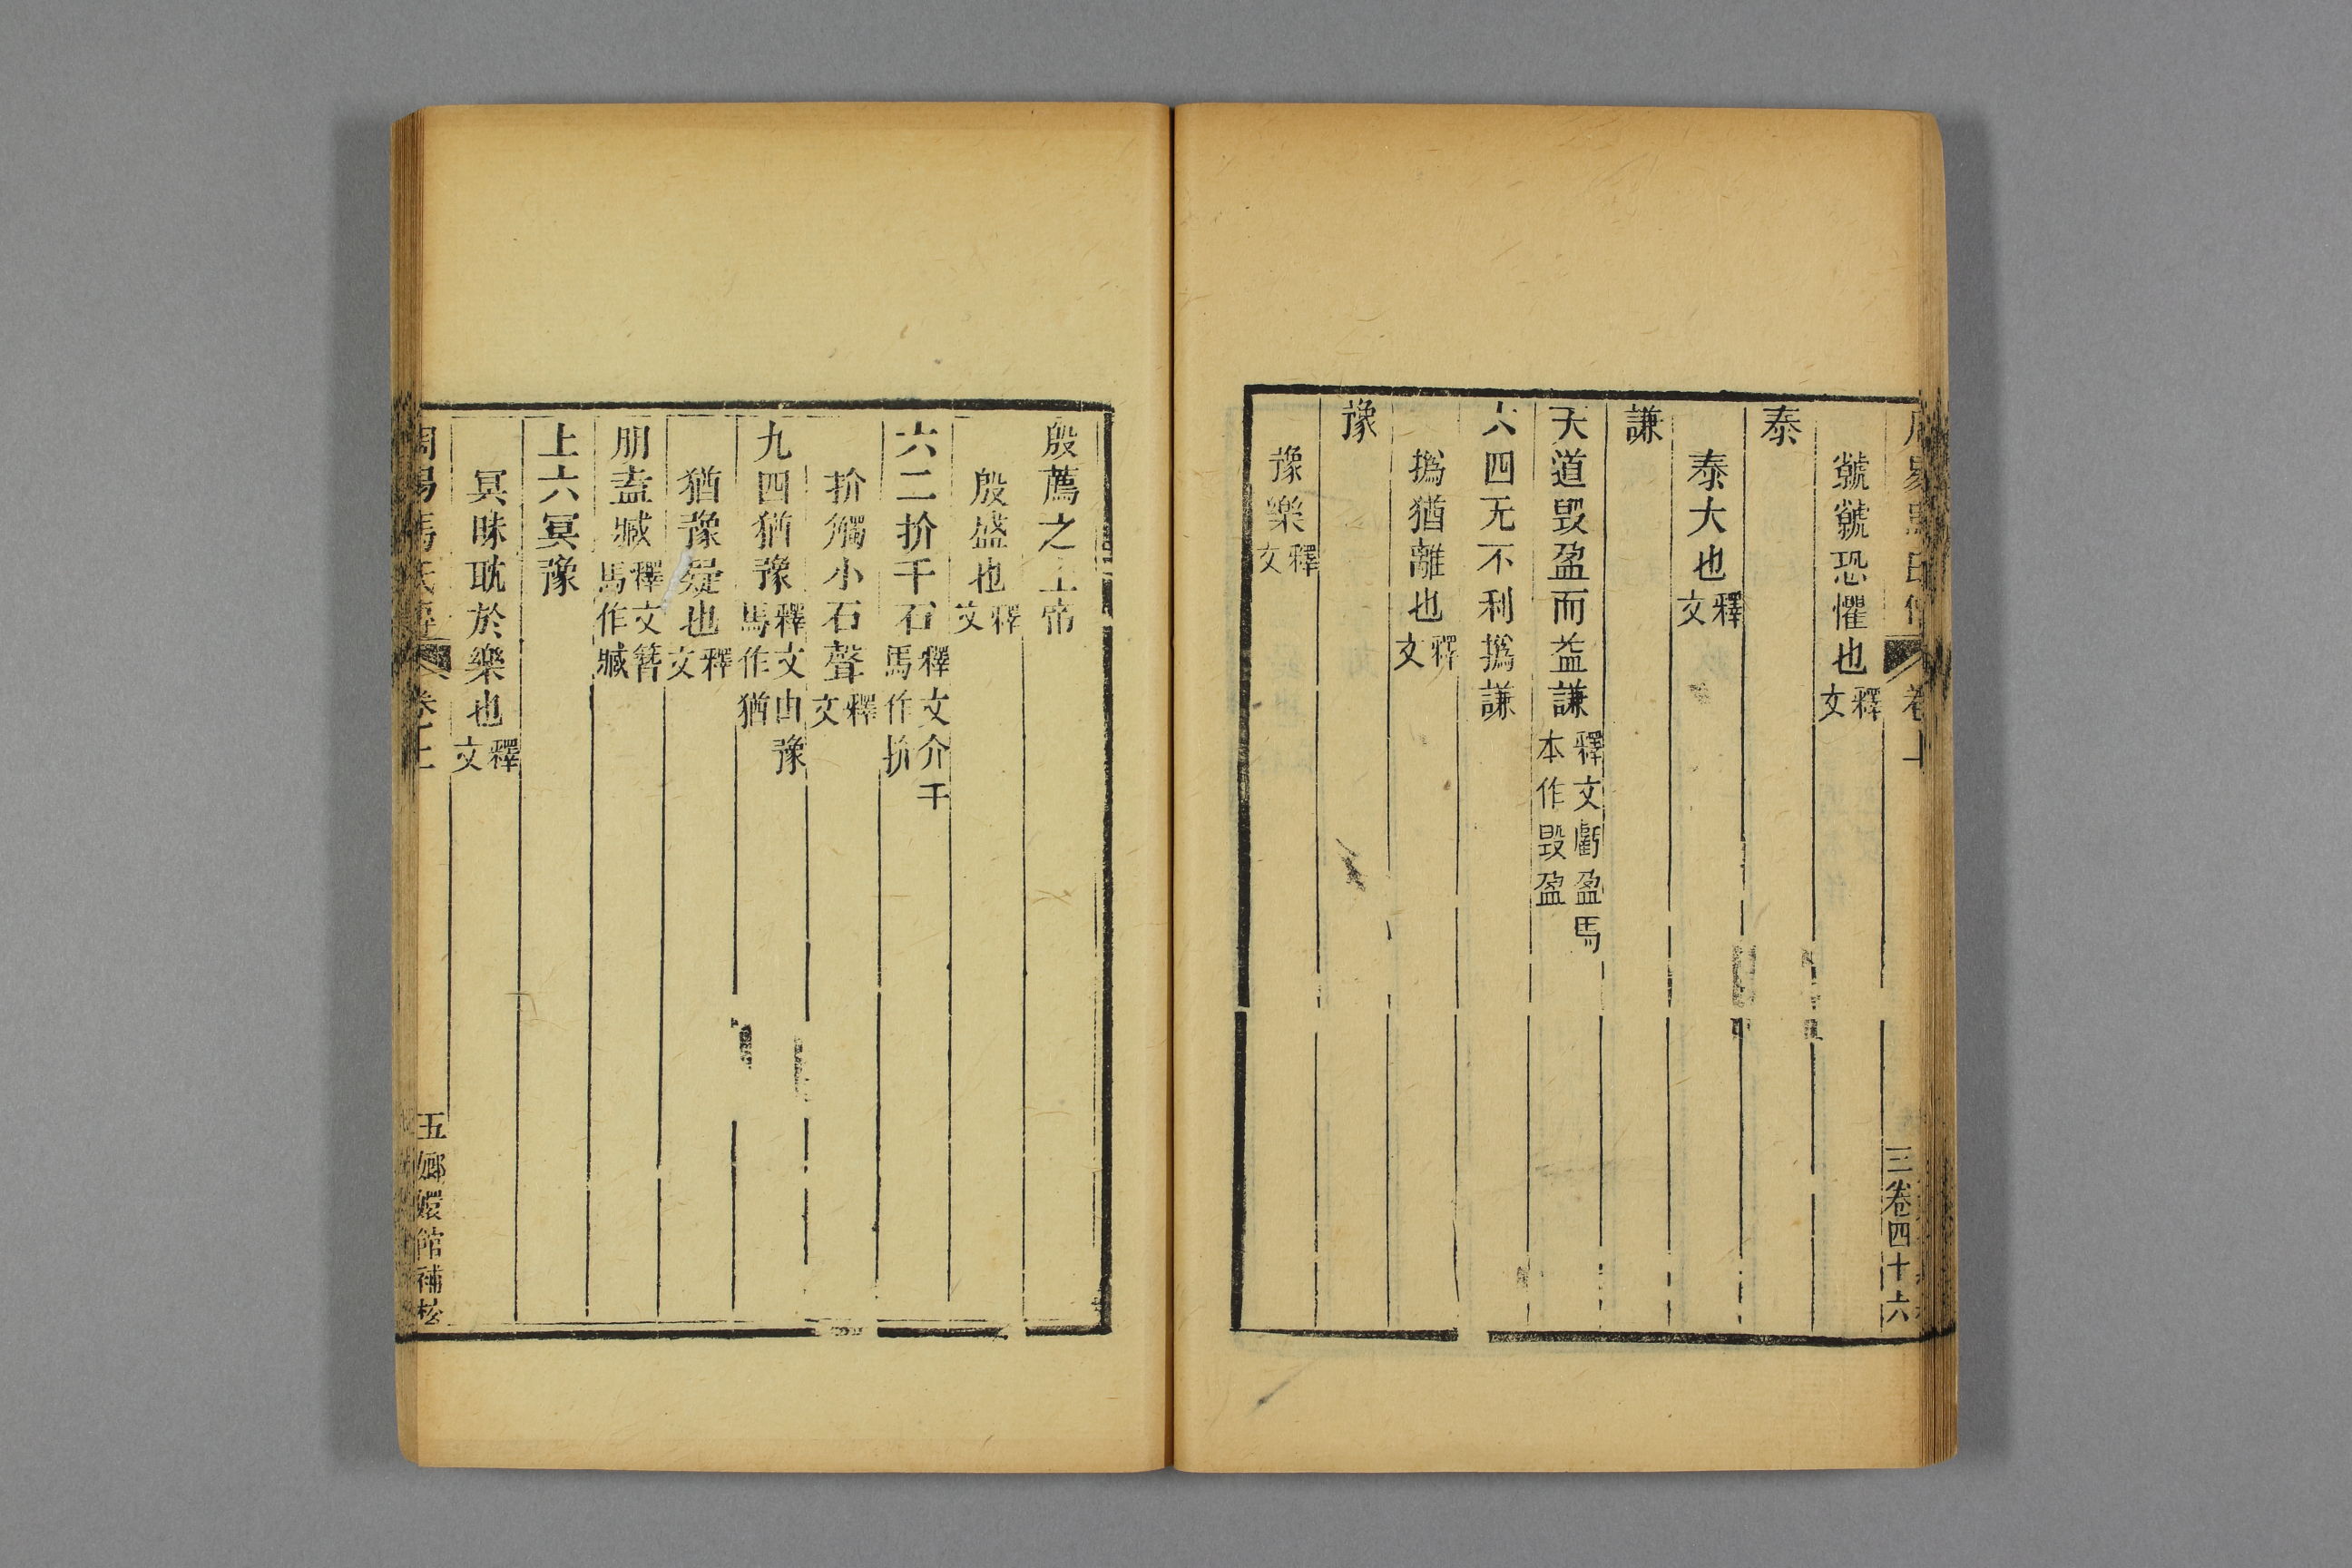 卷上
三卷四十六
虩虩恐懼也釋文
泰
泰大也釋文
謙
天道毀盈而益謙釋文虧盈馬本作毀盈
六四无不利撝謙
撝猶離也釋文
豫
豫樂釋文
殷薦之上帝
殷盛也釋文
六二扴于石釋文介于馬作扴
扴觸小石聲釋文
九四猶豫釋文由豫馬作猶
猶豫疑也釋文
朋盍臧釋文簪馬作臧
上六冥豫
冥昧耽於樂也釋文
周易馬氏傳 卷上
五 嫏嬛館補校